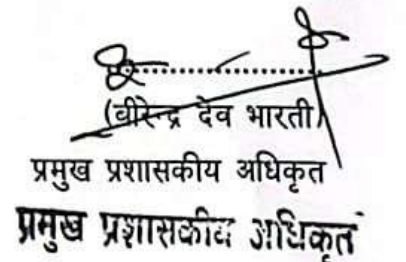 (वीरेन्द्र देव भारती)
प्रमुख प्रशासकीय अधिकृत
प्रमुख प्रशासकीय अधिकृत